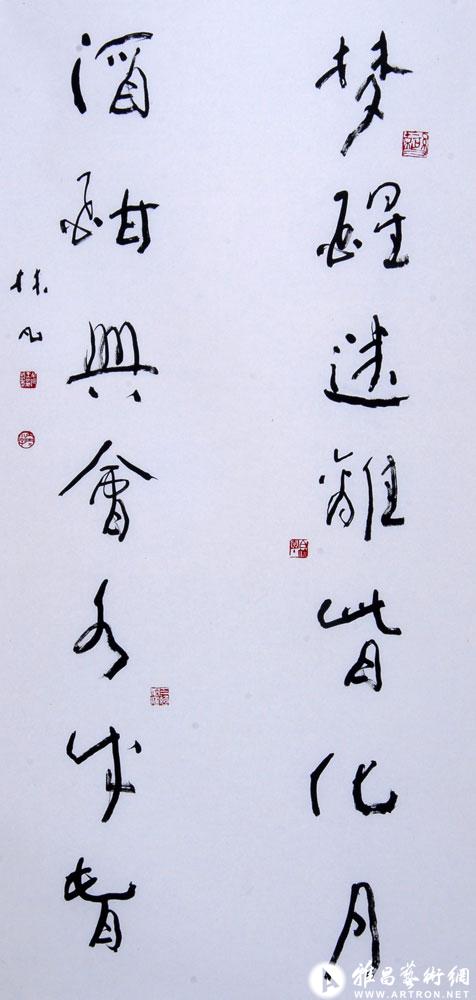 梦醒迷離皆化月
酒酣興會各成春
林凡
雅昌藝術網
WWW.ARTRON.NET